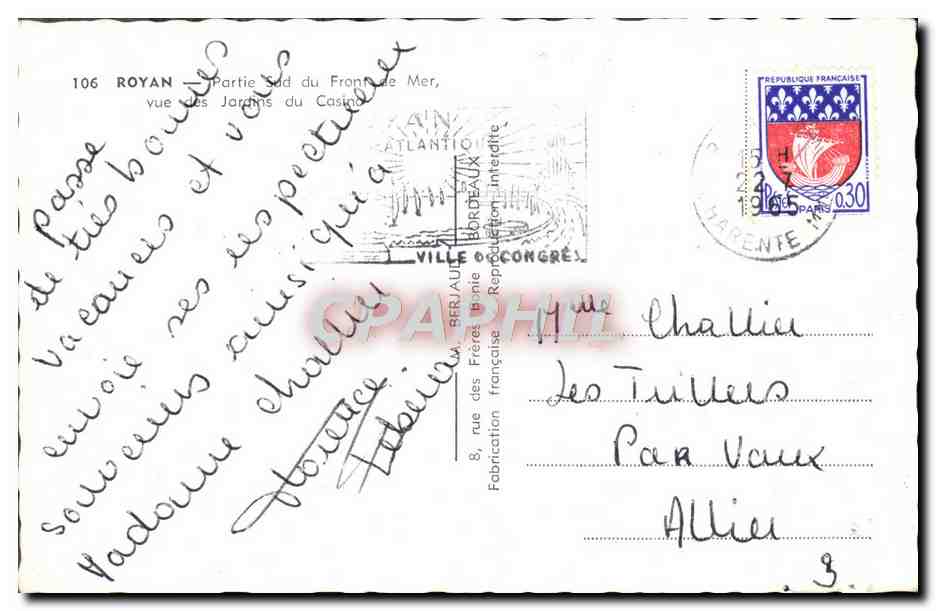 106 ROYAN — Partie Sud du Front de Mer,
vue des Jardins du Casino
Passe
de très bonnes
vacances et vous
envoie ses respectueux
souvenirs ainsi qu'à
Madame Challier
Florence
M. BERJAUD
8, rue des Frères Bonie BORDEAUX
Fabrication française Reproduction interdite
AN
ATLANTIQU
VILLE DE CONGRES
REPUBLIQUE FRANÇAISE
Postes 0,30
PARIS
H
2 7
1965
HARENTE M
CPAPHIL
Mme Challier
Les Tuillers
PAR Vaux
Allier
3